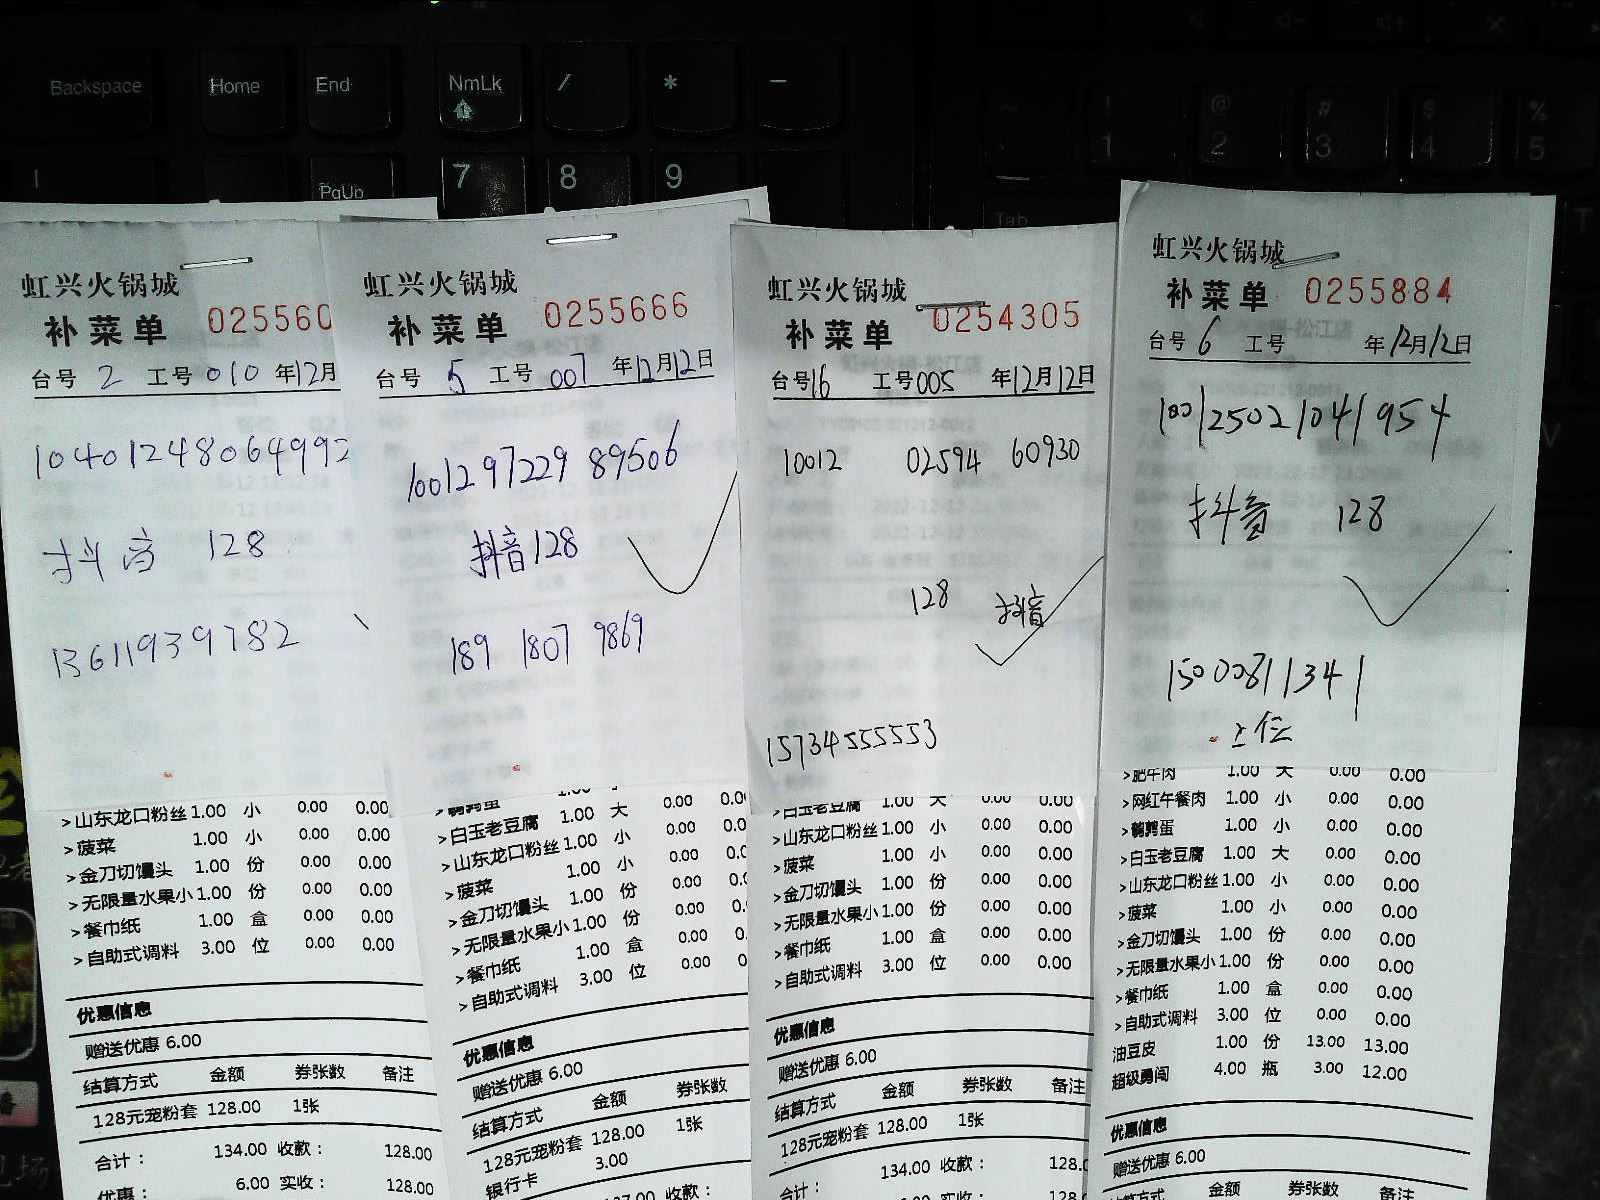 Backspace
Home
End
NmLk
/
*
-
7
8
9
PgUp
Tab
!
1
@
2
#
3
$
4
%
5
虹兴火锅城
补菜单
025560
台号 2 工号 010 年12月
1040124806499２
抖音 128
13611939782
>山东龙口粉丝 1.00 小 0.00 0.00
>菠菜 1.00 小 0.00 0.00
>金刀切馒头 1.00 份 0.00 0.00
>无限量水果小 1.00 份 0.00 0.00
>餐巾纸 1.00 盒 0.00 0.00
>自助式调料 3.00 位 0.00 0.00
优惠信息
赠送优惠 6.00
结算方式 金额 券张数 备注
128元宠粉套 128.00 1张
合计： 134.00 收款： 128.00
优惠： 6.00 实收： 128.00
虹兴火锅城
补菜单
0255666
台号 5 工号 007 年12月12日
1001297229 89506
抖音128
189 1807 9869
>鹌鹑蛋
>白玉老豆腐 1.00 大 0.00 0.0
>山东龙口粉丝 1.00 小 0.00 0.00
>菠菜 1.00 小 0.00 0.00
>金刀切馒头 1.00 份 0.00 0.0
>无限量水果小 1.00 份 0.00 0.
>餐巾纸 1.00 盒 0.00 0.
>自助式调料 3.00 位 0.00 0
优惠信息
赠送优惠 6.00
结算方式 金额 券张数
128元宠粉套 128.00 1张
银行卡 3.00
收款：
虹兴火锅城
补菜单
0254305
台号16 工号005 年12月12日
10012 02594 60930
128 抖音
15734555553
>白玉老豆腐 1.00 大 0.00 0.00
>山东龙口粉丝 1.00 小 0.00 0.00
>菠菜 1.00 小 0.00 0.00
>金刀切馒头 1.00 份 0.00 0.00
>无限量水果小 1.00 份 0.00 0.00
>餐巾纸 1.00 盒 0.00 0.00
>自助式调料 3.00 位 0.00 0.00
优惠信息
赠送优惠 6.00
结算方式 金额 券张数 备注
128元宠粉套 128.00 1张
合计： 134.00 收款： 128.0
实收： 128
虹兴火锅城
补菜单
0255884
台号 6 工号 年12月12日
100125021041954
抖音 128
15000811341
>肥牛肉 1.00 大 0.00 0.00
>网红午餐肉 1.00 小 0.00 0.00
>鹌鹑蛋 1.00 小 0.00 0.00
>白玉老豆腐 1.00 大 0.00 0.00
>山东龙口粉丝 1.00 小 0.00 0.00
>菠菜 1.00 小 0.00 0.00
>金刀切馒头 1.00 份 0.00 0.00
>无限量水果小 1.00 份 0.00 0.00
>餐巾纸 1.00 盒 0.00 0.00
>自助式调料 3.00 位 0.00 0.00
油豆皮 1.00 份 13.00 13.00
超级勇闯 4.00 瓶 3.00 12.00
优惠信息
赠送优惠 6.00
结算方式 金额 券张数 备注